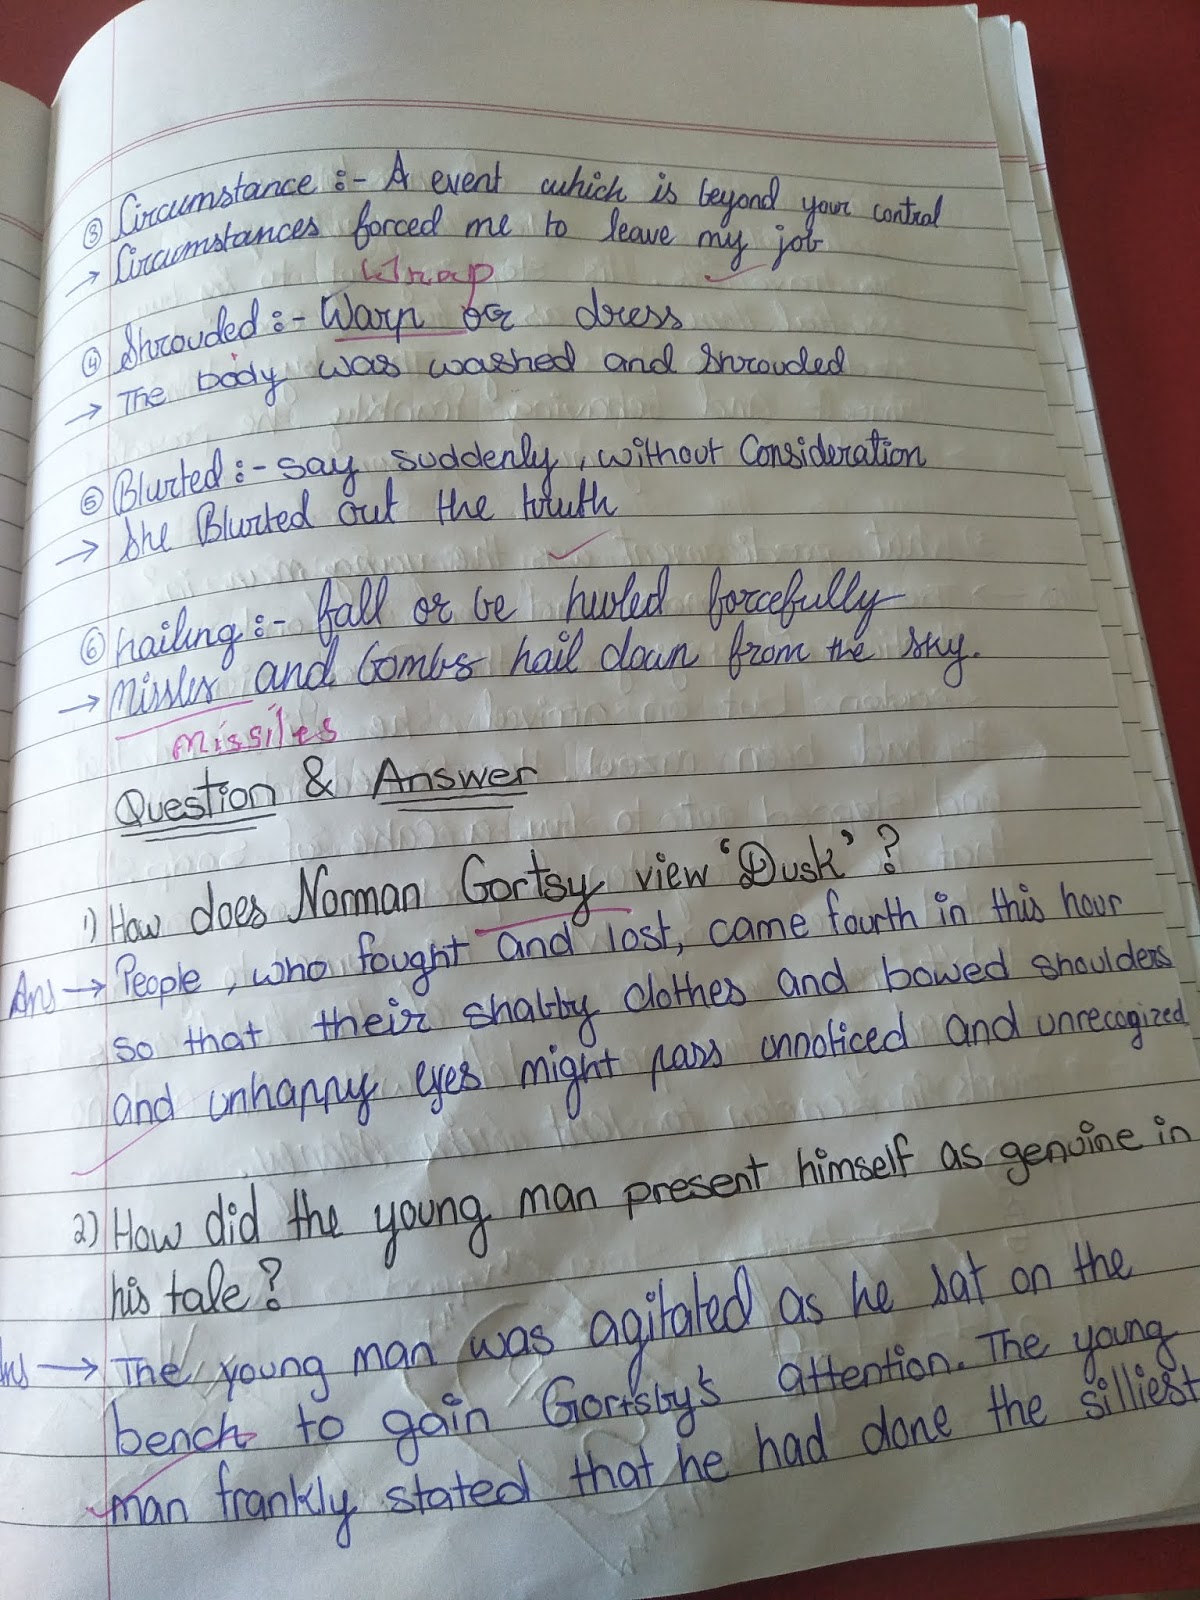 ③ Circumstance :- A event which is beyond your control
→ Circumstances forced me to leave my job
Wrap
④ Shrouded :- Warp or dress
→ The body was washed and shrouded
⑤ Blurted :- say suddenly, without Consideration
→ She Blurted out the truth
⑥ hailing :- fall or be hurled forcefully
→ Missles and bombs hail down from the sky.
Missiles
Question & Answer
1) How does Norman Gortsy view 'Dusk'?
Ans → People, who fought and lost, came fourth in this hour
so that their shabby clothes and bowed shoulders
and unhappy eyes might pass unnoticed and unrecogized
2) How did the young man present himself as genuine in
his tale?
Ans → The young man was agitated as he sat on the
bench to gain Gortsby's attention. The young
man frankly stated that he had done the silliest